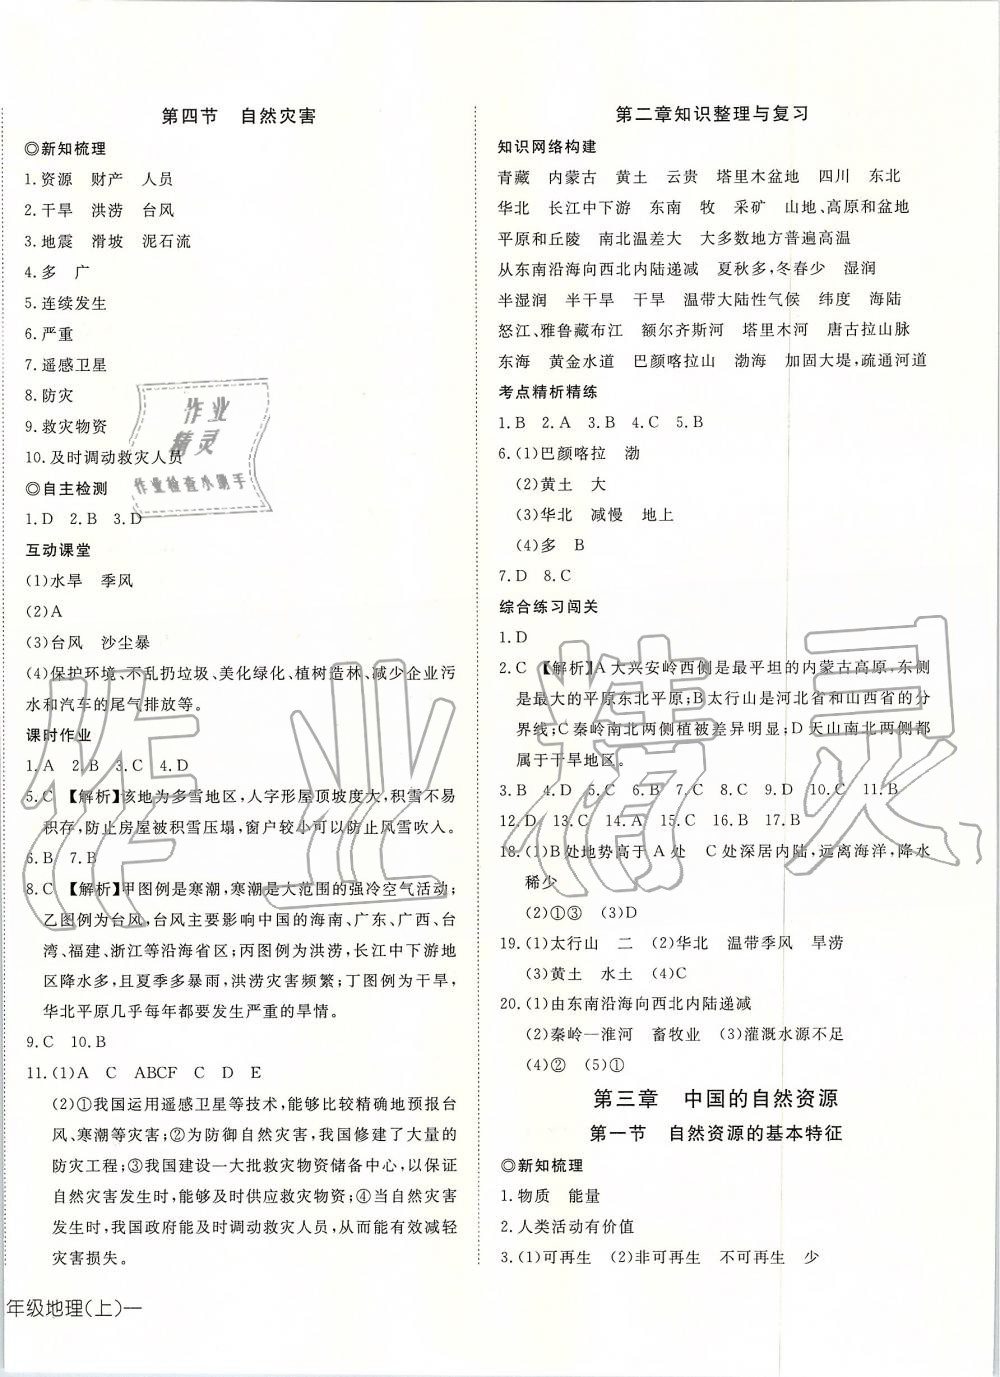 第四节　自然灾害
◎新知梳理
1.资源　财产　人员
2.干旱　洪涝　台风
3.地震　滑坡　泥石流
4.多　广
5.连续发生
6.严重
7.遥感卫星
8.防灾
9.救灾物资
10.及时调动救灾人员
◎自主检测
1.D　2.B　3.D
互动课堂
(1)水旱　季风
(2)A
(3)台风　沙尘暴
(4)保护环境、不乱扔垃圾、美化绿化、植树造林、减少企业污
水和汽车的尾气排放等。
课时作业
1.A　2.B　3.C　4.D
5.C　【解析】该地为多雪地区,人字形屋顶坡度大,积雪不易
积存,防止房屋被积雪压塌,窗户较小可以防止风雪吹人。
6.B　7.B
8.C　【解析】甲图例是寒潮,寒潮是大范围的强冷空气活动;
乙图例为台风,台风主要影响中国的海南、广东、广西、台
湾、福建、浙江等沿海省区;丙图例为洪涝,长江中下游地
区降水多,且夏季多暴雨,洪涝灾害频繁;丁图例为干旱,
华北平原几乎每年都要发生严重的旱情。
9.C　10.B
11.(1)A　C　ABCF　C　D　E
(2)①我国运用遥感卫星等技术,能够比较精确地预报台
风、寒潮等灾害;②为防御自然灾害,我国修建了大量的
防灾工程;③我国建设一大批救灾物资储备中心,以保证
自然灾害发生时,能够及时供应救灾物资;④当自然灾害
发生时,我国政府能及时调动救灾人员,从而能有效减轻
灾害损失。
年级地理(上)—
第二章知识整理与复习
知识网络构建
青藏　内蒙古　黄土　云贵　塔里木盆地　四川　东北
华北　长江中下游　东南　牧　采矿　山地、高原和盆地
平原和丘陵　南北温差大　大多数地方普遍高温
从东南沿海向西北内陆递减　夏秋多,冬春少　湿润
半湿润　半干旱　干旱　温带大陆性气候　纬度　海陆
怒江、雅鲁藏布江　额尔齐斯河　塔里木河　唐古拉山脉
东海　黄金水道　巴颜喀拉山　渤海　加固大堤,疏通河道
考点精析精练
1.B　2.A　3.B　4.C　5.B
6.(1)巴颜喀拉　渤
(2)黄土　大
(3)华北　减慢　地上
(4)多　B
7.D　8.C
综合练习闯关
1.D
2.C　【解析】A大兴安岭西侧是最平坦的内蒙古高原,东侧
是最大的平原东北平原;B太行山是河北省和山西省的分
界线;C秦岭南北两侧植被差异明显;D天山南北两侧都
属于干旱地区。
3.B　4.D　5.C　6.B　7.B　8.C　9.D　10.C　11.B
12.D　13.C　14.A　15.C　16.B　17.B
18.(1)B处地势高于A处　C处深居内陆,远离海洋,降水
稀少
(2)①③　(3)D
19.(1)太行山　二　(2)华北　温带季风　旱涝
(3)黄土　水土　(4)C
20.(1)由东南沿海向西北内陆递减
(2)秦岭—淮河　畜牧业　(3)灌溉水源不足
(4)②　(5)①
第三章　中国的自然资源
第一节　自然资源的基本特征
◎新知梳理
1.物质　能量
2.人类活动有价值
3.(1)可再生　(2)非可再生　不可再生　少
作业
精灵
作业检查小助手
作业精灵